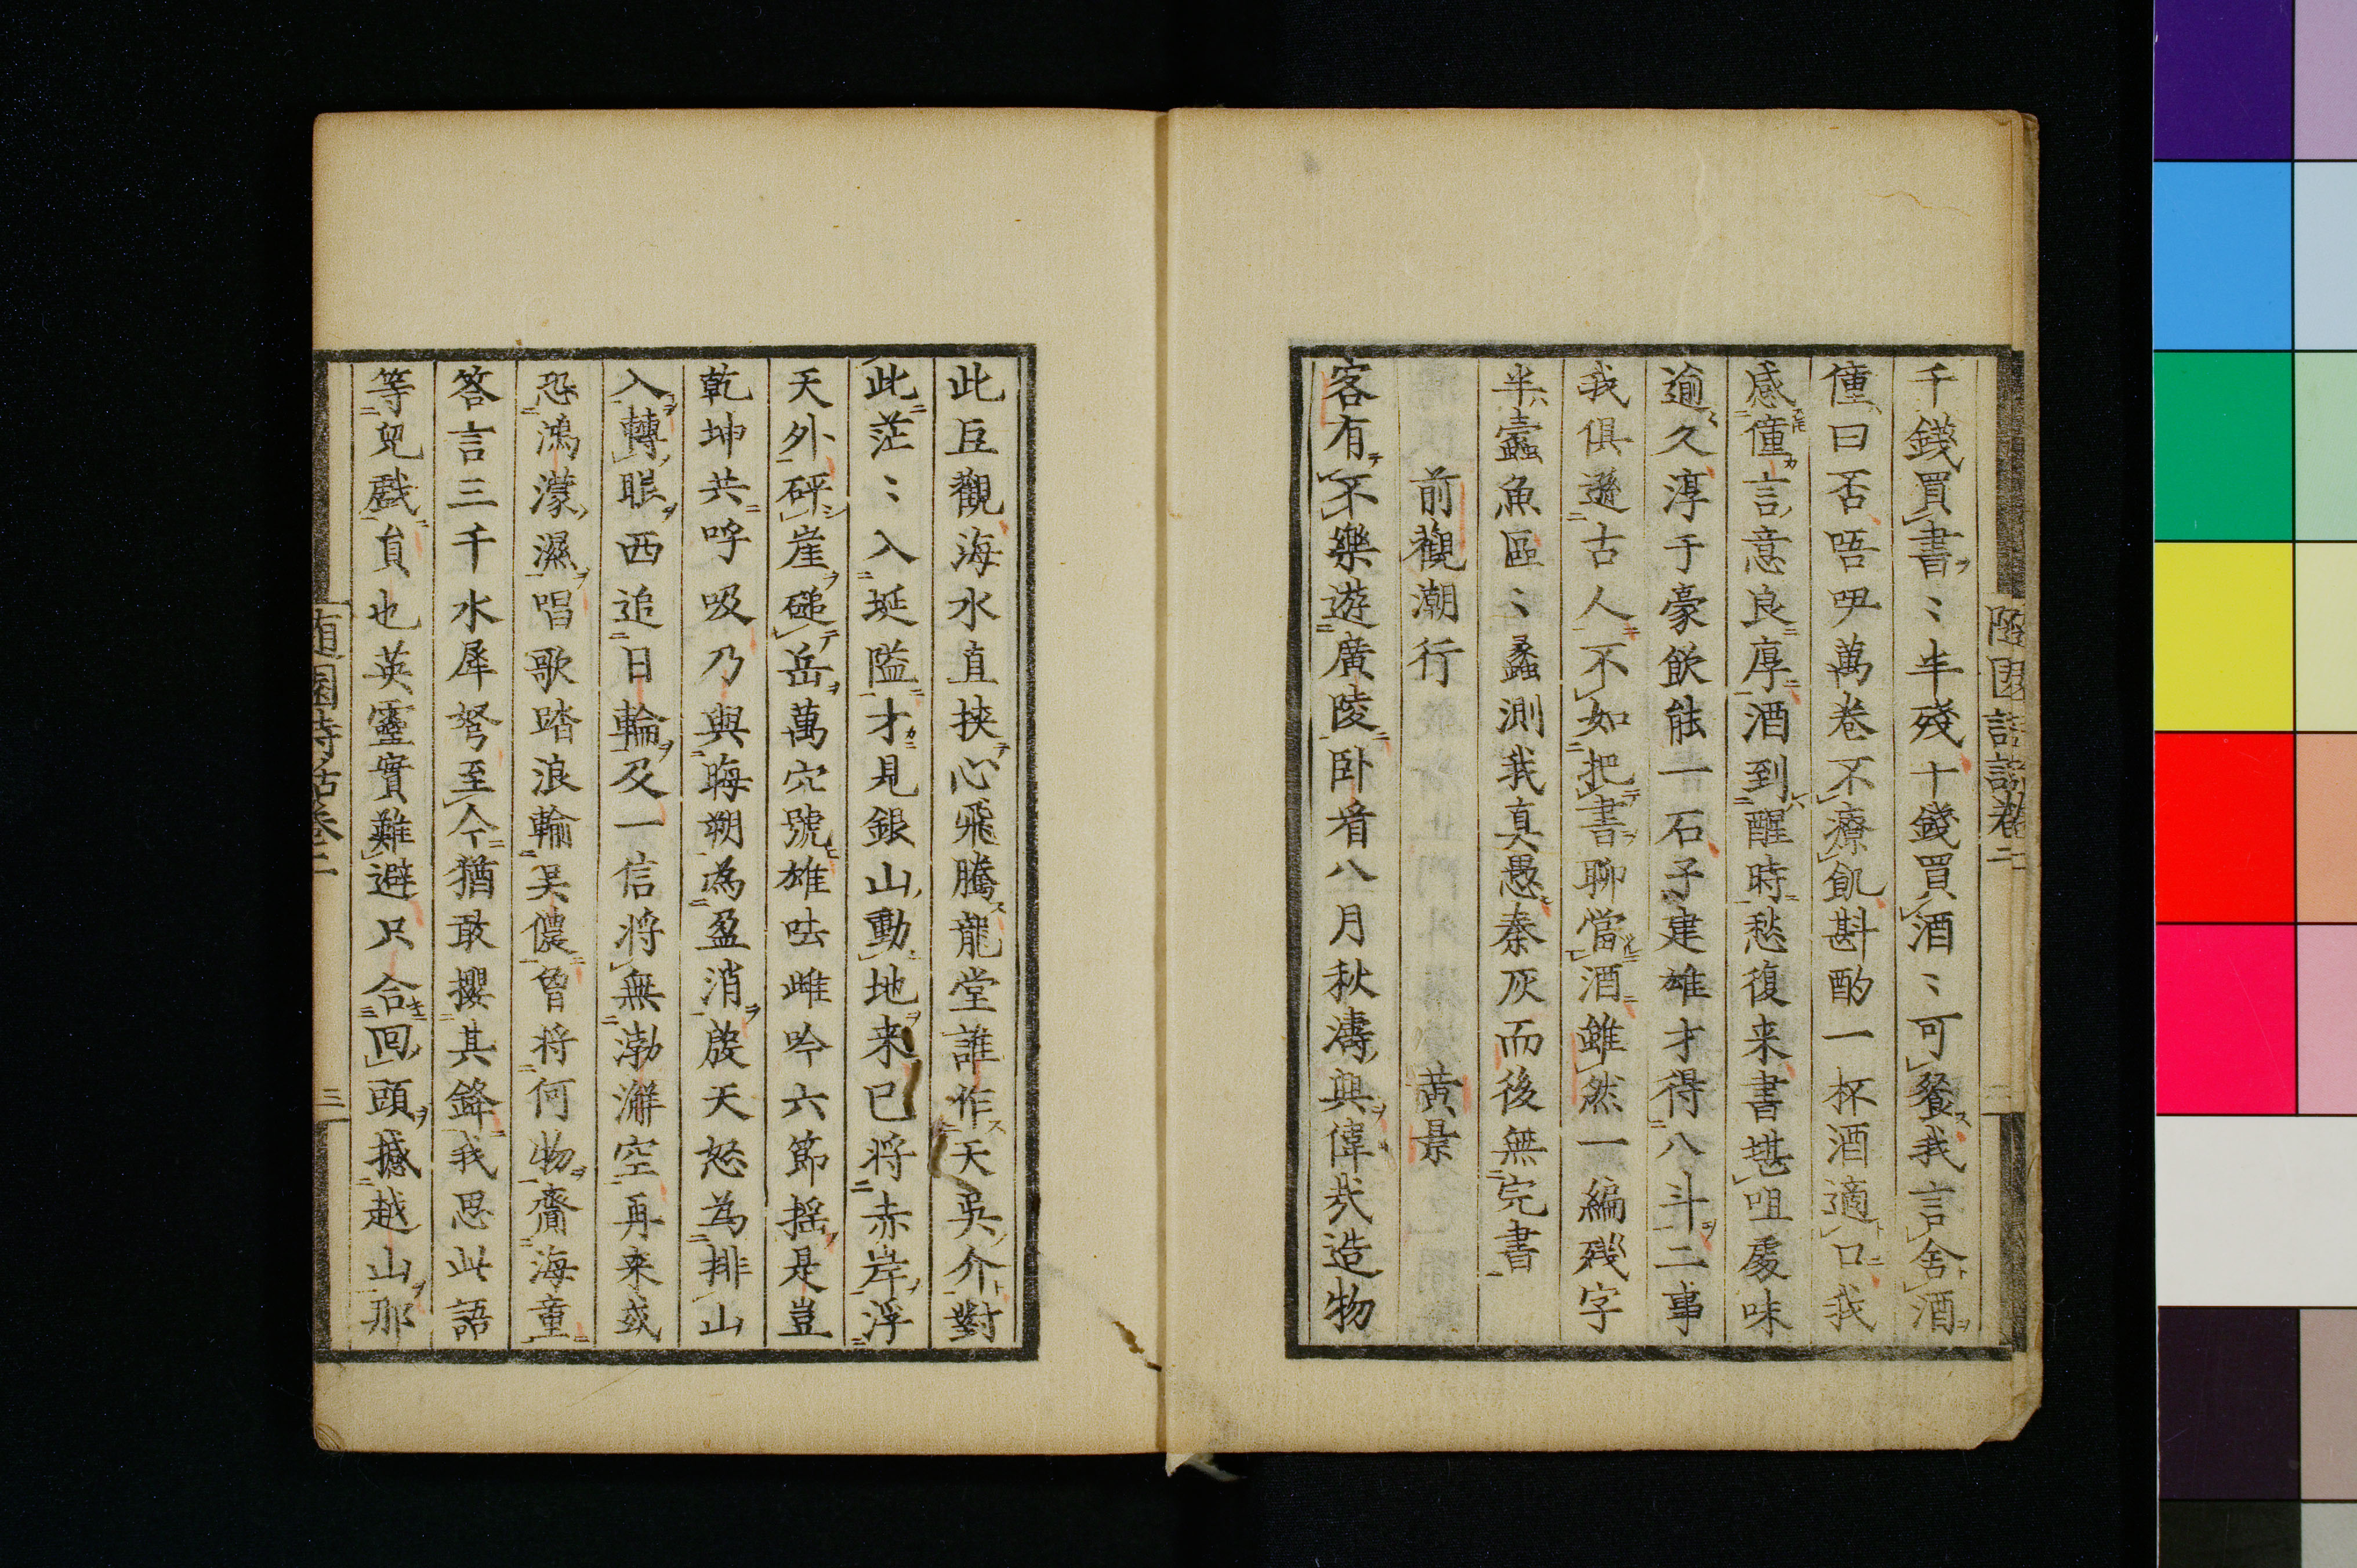 千錢買書〻半殘十錢買酒〻可餐我言舍酒
僮曰否唔吚萬卷不療飢斟酌一杯酒適口我
感僮言意良厚酒到醒時愁復来書堪咀處味
逾久淳于豪飲能一石子建雄才得八斗二事
我俱遜古人不如把書聊當酒雖然一編殘字
半蠹魚區〻蠡測我真愚秦灰而後無完書
前觀潮行 黄景
客有不樂遊廣陵卧看八月秋濤興偉哉造物
此巨觀海水直挾心飛騰龍堂誰作天吳介對
此茫〻入埏隘才見銀山動地来已将赤岸浮
天外砰崖磓岳萬穴號雄呿雌吟六節揺是豈
乾坤共呼吸乃與晦朔為盈消殷天怒為排山
入轉眼西追日輪及一信将無渤澥空再来或
恐鴻濛濕唱歌踏浪輸吳儂曾将何物齎海童
答言三千水犀弩至今猶敢攖其鋒我思此語
等兒戯負也英靈實難避只合回頭撼越山那
随園詩話卷二
三